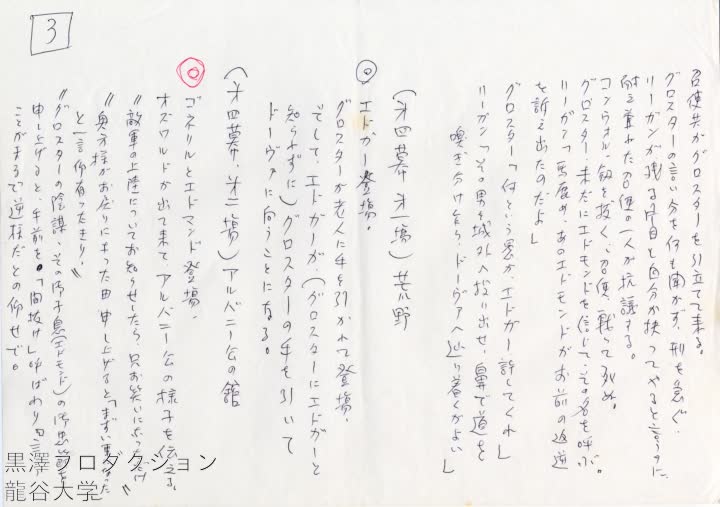 3
召使共がグロスターを引立てて来る。
グロスターの言い分を何も聞かず、刑を急ぐ
リーガンが残る片目も自分が抉ってやると言うのに、
耐え兼ねた召使の一人が抗議する。
コンウォル、剣を抜く、召使、戦って死ぬ。
グロスター、未だにエドモンドを信じて、その名を呼ぶ。
リーガン「馬鹿め、あのエドモンドがお前の返逆
を訴え出たのだよ」
グロスター「何という愚か、エドガー許してくれ」
リーガン「その男を城外へ放り出せ、鼻で道を
嗅ぎ分け乍ら、ドーヴァへ辿り着くがよい」
(才四幕 才一場) 荒野
◎ エドガー登場。
グロスターが老人に手を引かれて登場、
そして、エドガーが、(グロスターにエドガーと
知られずに)グロスターの手を引いて
ドーヴァに向うことになる。
(才四幕、才二場) アルバニー公の館
◎ ゴネリルとエドマンド登場、
オズワルドが出て来て アルバニー公の様子を伝える、
《敵軍の上陸についてお知らせしたら、只お笑いになっただけ》
《奥方様がお戻りになった由申し上げると「まずい事になった
と一言仰有ったきり、》
《グロスターの陰謀、その御子息(エドモンド)の御忠節を
申し上げると、手前を。「間抜け」呼ばわり
ことがまるで逆様だとの仰せで。
黒澤プロダクション
龍谷大学